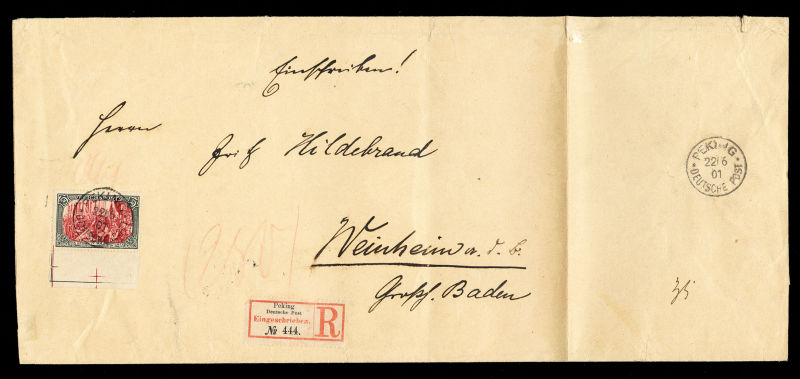 Einschreiben!
Herrn
Fritz Hildebrand
Weinheim a. d. b.
Großh. Baden
Peking
Deutsche Post
Eingeschrieben.
№ 444.
R
PEKING
22/6
01
DEUTSCHE POST